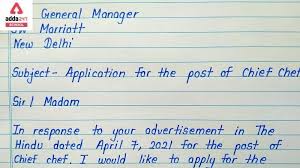 adda247
SCHOOL
General Manager
JW Marriott
New Delhi
Subject- Application for the post of Chief Chef
Sir | Madam
In response to your advertisement in The
Hindu dated April 7, 2021 for the post of
Chief chef. I would like to apply for the